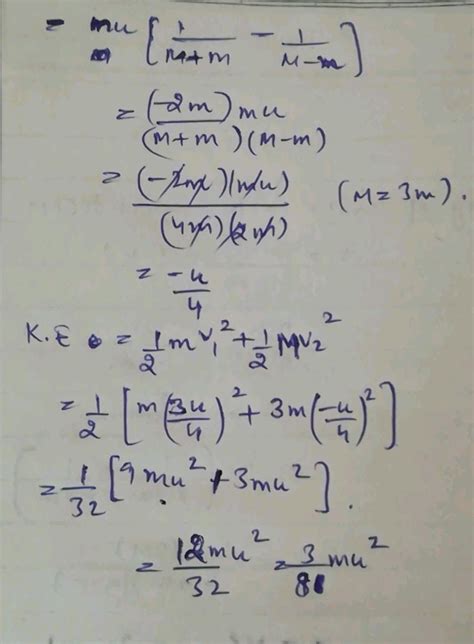 = mu [ 1/(M+m) - 1/(M-m) ]
= (-2m) mu / (M+m)(M-m)
= (-2m)(mu) / (4m)(2m) (M=3m).
= -u/4
K.E = 1/2 mv₁² + 1/2 Mv₂²
= 1/2 [ m(3u/4)² + 3m(-u/4)² ]
= 1/32 [ 9mu² + 3mu² ].
= 12mu²/32 = 3/8 mu²